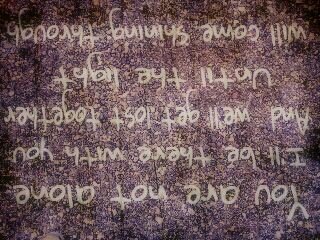 You are not alone
I'll be there with you
And we'll get lost together
Until the light
will come shining through